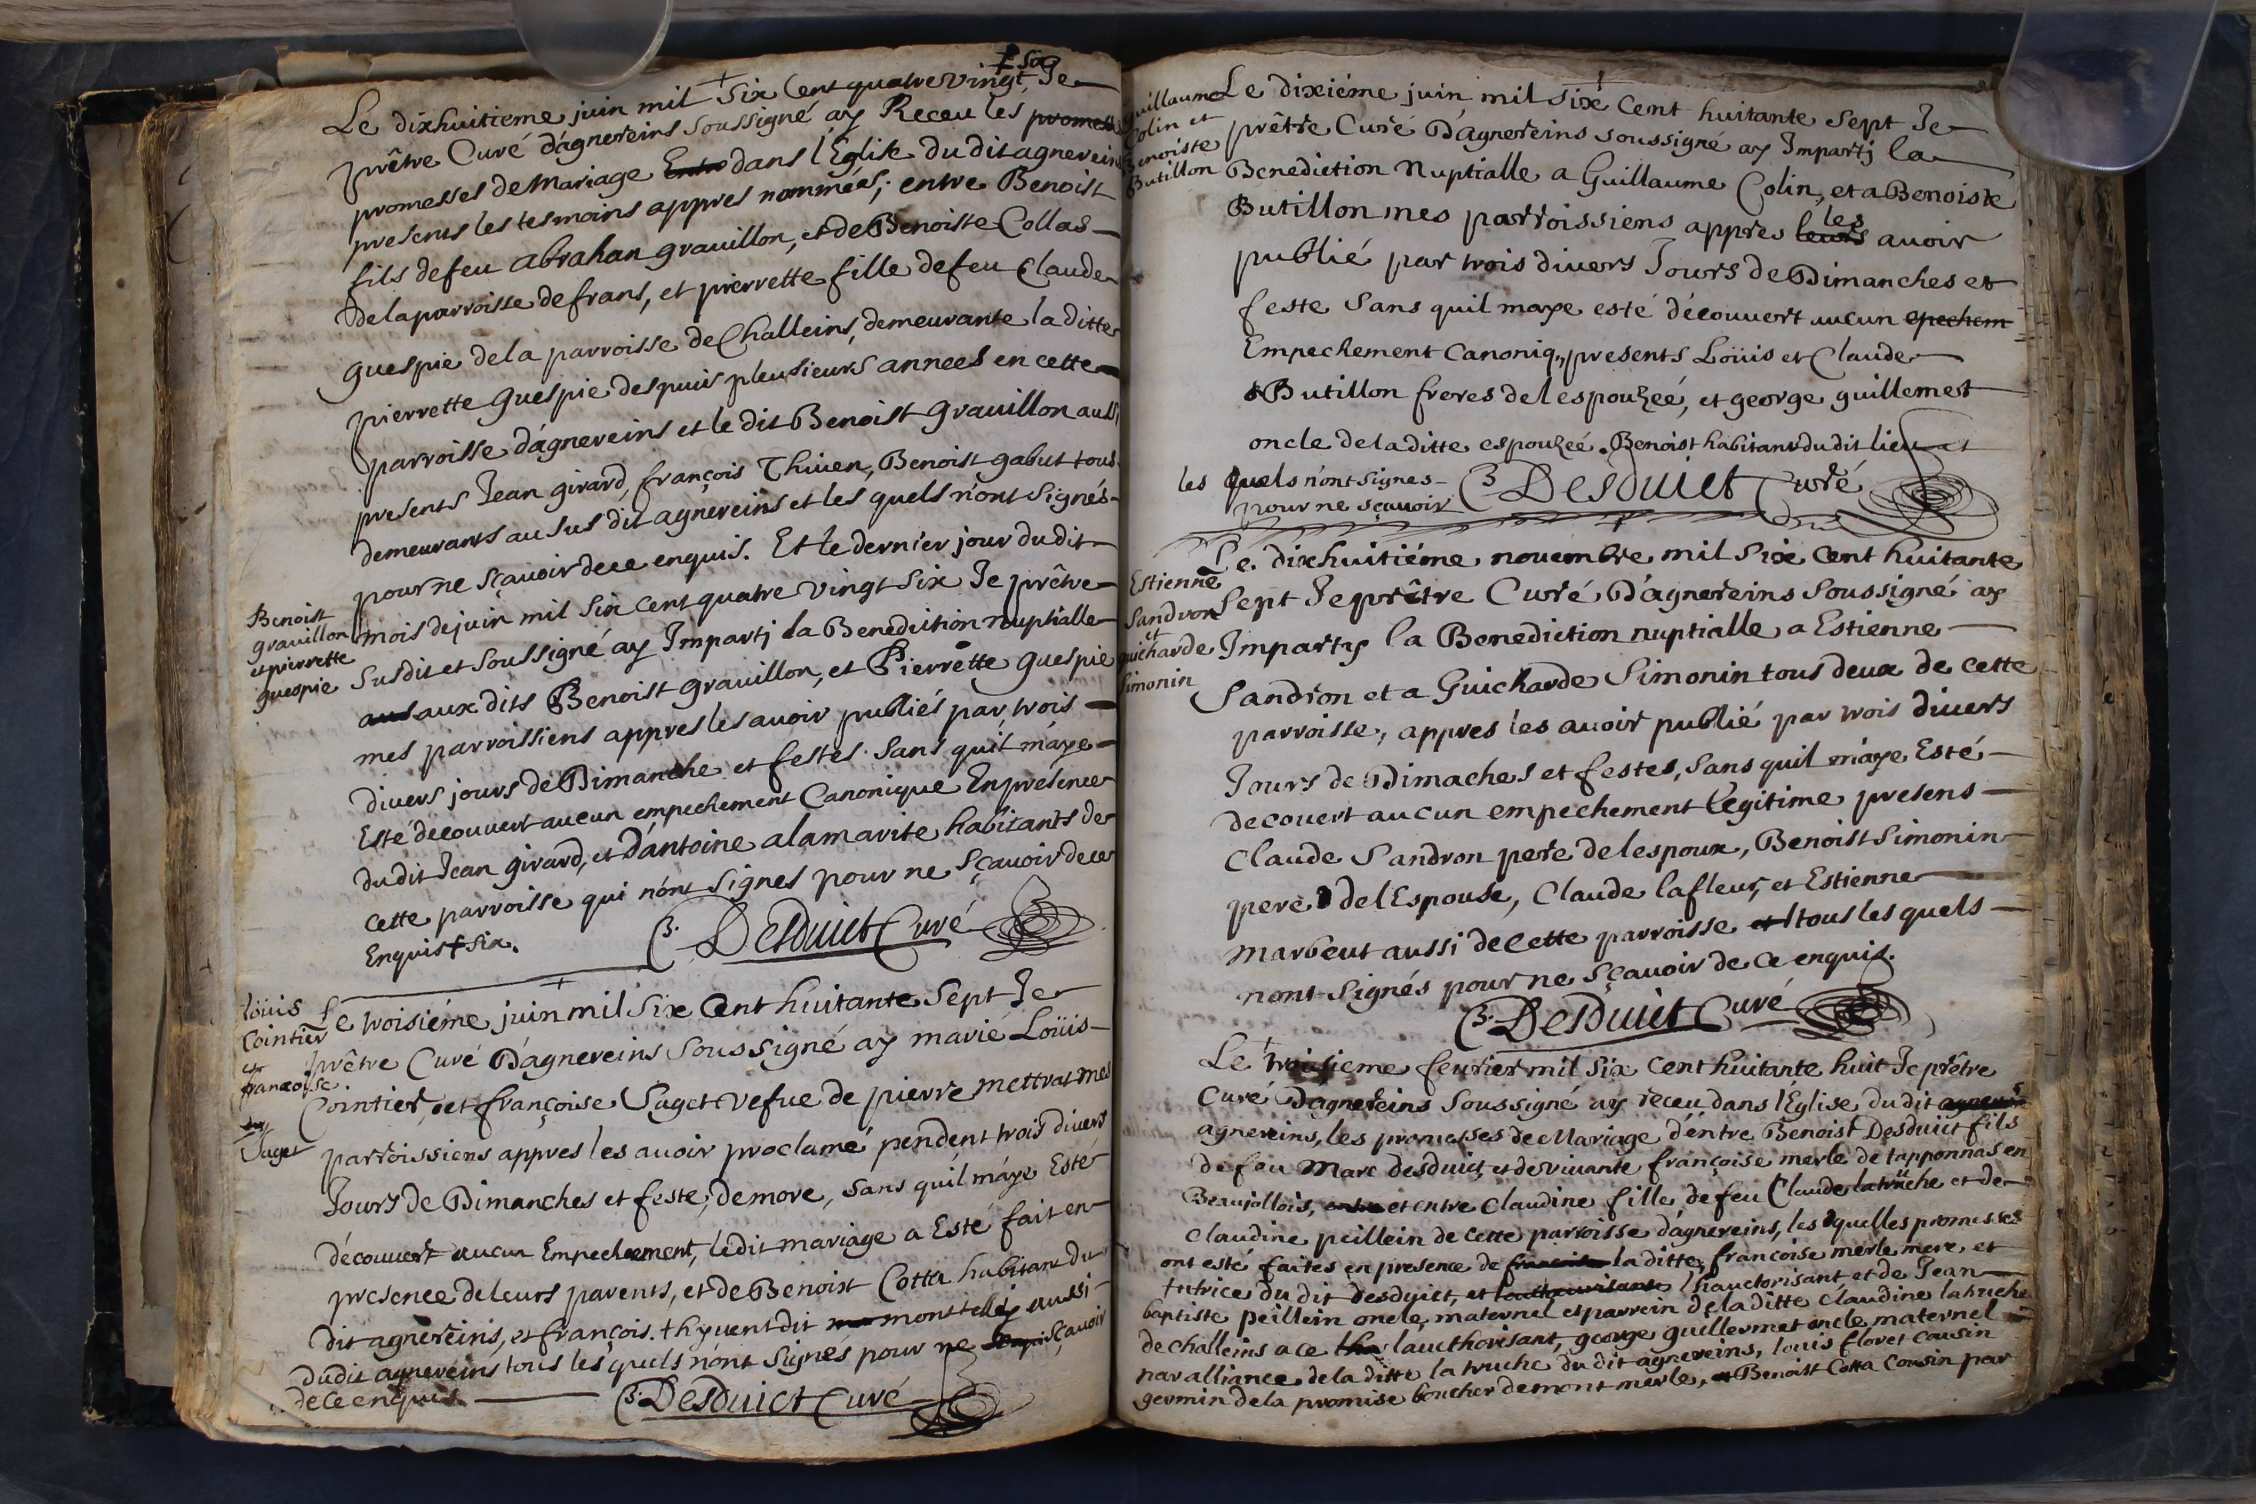 ☨ six
Le dixhuitieme juin mil six cent quatre vingt, Je
prêtre Curé d'agnereins soussigné ay Receu les promess
promesses de Mariage Entre dans l'Eglise du dit agnereins
presents les tesmoins appres nommées; entre Benoist
fils defeu abrahan grauillon, et de Benoiste Collas
de la parroisse de frans, et pierrette fille defeu Claude
guespie dela parroisse de Challeins, demeurante la ditte
pierrette guespie despuis pleusieurs années en cette
parroisse d'agnereins et le dit Benoist grauillon aussi
presents Jean girard, françois Thiuen, Benoist gabut tous
demeurants au sus dit agnereins et les quels n'ont signés
pour ne sçauoir de ce enquis. Et le dernier jour du dit
mois de juin mil six cent quatre vingt six Je prêtre
Benoist
grauillon
et pierrette
guespie
susdit et soussigné ay Impartj la Benediction nuptialle
aus aux dits Benoist grauillon, et Pierrette guespie
mes parroissiens appres les auoir publiés par trois
divers jours de Dimanche et festes sans quil m'aye
Esté decouuert aucun empechement Canonique En presence
du dit Jean girard, et D'antoine alamarite habitants de
cette parroisse qui n'ont signes pour ne sçauoir de ce
Enquis ☨ six.
B. Desduict Curé
loüis
Cointier
et
francoise
du
Saget
Le troisiéme juin mil six Cent huitante sept Je
prêtre Curé D'agnereins soussigné ay marié Loüis
Cointier, et françoise Saget vefue de pierre mettrat mes
parroissiens appres les auoir proclamé pendent trois diuers
Jours de Dimanches et feste, demore, sans quil m'aye Esté
découuert aucun Empechement, ledit mariage a Esté fait en
presence de leurs parents, et de Benoist Cotta habitant du
dit agnereins, et françois. thyuent dit mo montelly aussi
du dit agnereins tous les quels n'ont signés pour ne sçauoir
de ce enquis
B. Desduict Curé
Guillaume
Colin et
Benoiste
Butillon
Le dixiéme juin mil six cent huitante sept Je
prêtre Curé D'agnereins soussigné ay Impartj la
Benediction Nuptialle a Guillaume Colin, et a Benoiste
Butillon mes parroissiens appres leurs les auoir
publié par trois diuers Jours de Dimanches et
feste sans quil m'aye esté découuert aucun epechem
Empechement Canoniq., presents Loüis et Claude
Butillon freres de l espouzeé, et george guillemet
oncle de la ditte espouzeé. Benoist habitant du dit lieu
les quels n'ont signes
pour ne sçauoir
B Desduict Curé
Estienne
Sandron
et
guicharde
Simonin
Le dixhuitiéme nouembre mil six cent huitante
sept Je prêtre Curé D'agnereins soussigné ay
Imparty la Benediction nuptialle a Estienne
Sandron et a Guicharde Simonin tous deux de cette
parroisse, appres les auoir publié par trois diuers
Jours de Dimaches et festes, sans quil m'aye Esté
decouert aucun empechement Legitime presens
Claude Sandron pere de lespoux, Benoist Simonin
pere del Espouse, Claude lafleur, et Estienne
marbeut aussi de Cette parroisse et tous les quels
nont signés pour ne sçauoir de ce enquis.
B. Desduict Curé
Le troisieme feurier mil six cent huitante huit Je prêtre
Curé Dagnereins soussigné ay receu dans l'Église du dit agnereins
agnereins, les promesses de Mariage d'entre Benoist Desduict fils
defeu Marc desduict, et de viuante françoise merle de tapponnas en
Beaujollois, entre et entre Claudine fille, defeu Claude latruche et de
Claudine peillein de cette parroisse d'agnereins, les quelles promesses
ont esté faites en presence de francoise la ditte, francoise merle mere, et
tutrice du dit desduict, et l'authaurisant l'hauctorisant et de Jean
baptiste peillein oncle, maternel et parrein de la ditte Claudine latruche
de challeins a ce tha laucthorisant, george guillermet oncle maternel
par alliance, de la ditte la truche du dit agnereins, louis floret cousin
germin de la promise boucher de mont merle, et Benoist Cotta Cousin par